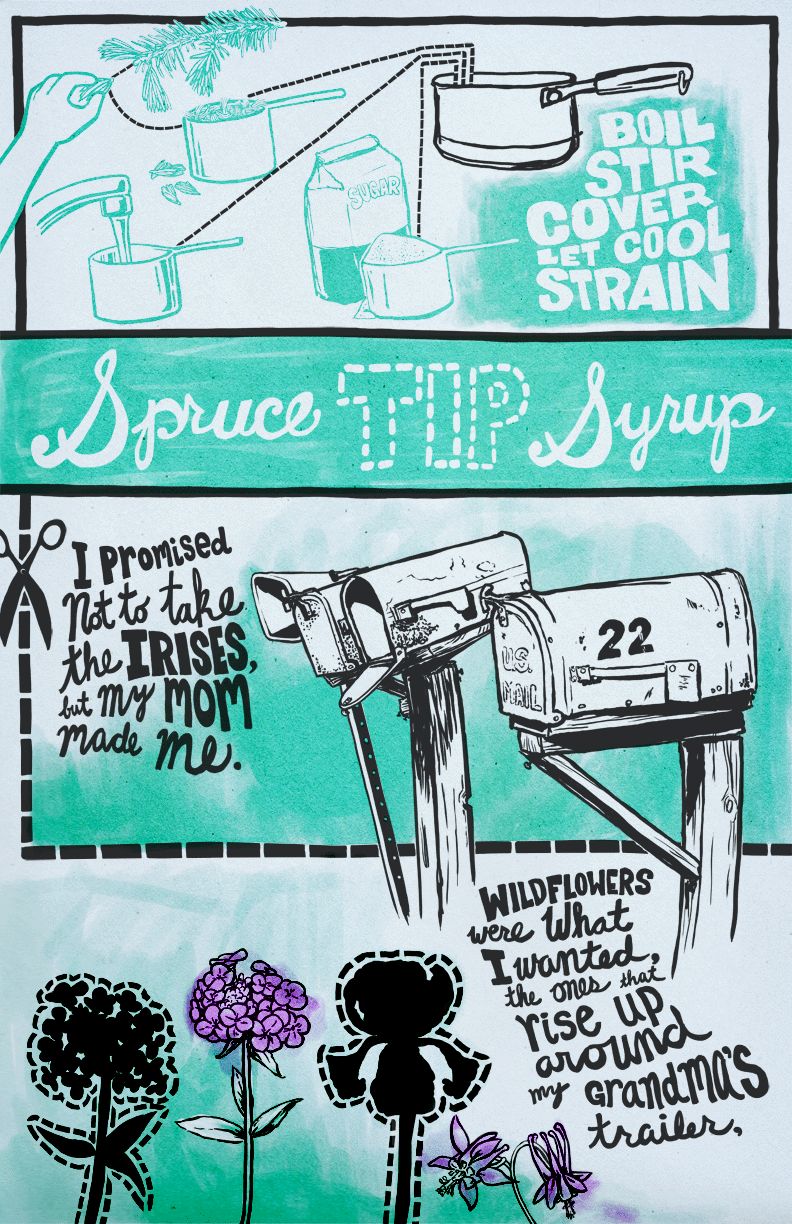 SUGAR
BOIL
STIR
COVER
LET COOL
STRAIN
Spruce TIP Syrup
I Promised
Not to take
the IRISES,
but my MOM
made me.
22
U.S.
MAIL
WILDFLOWERS
were What
I wanted,
the ones that
rise up
around
my GRANDMA'S
trailer,